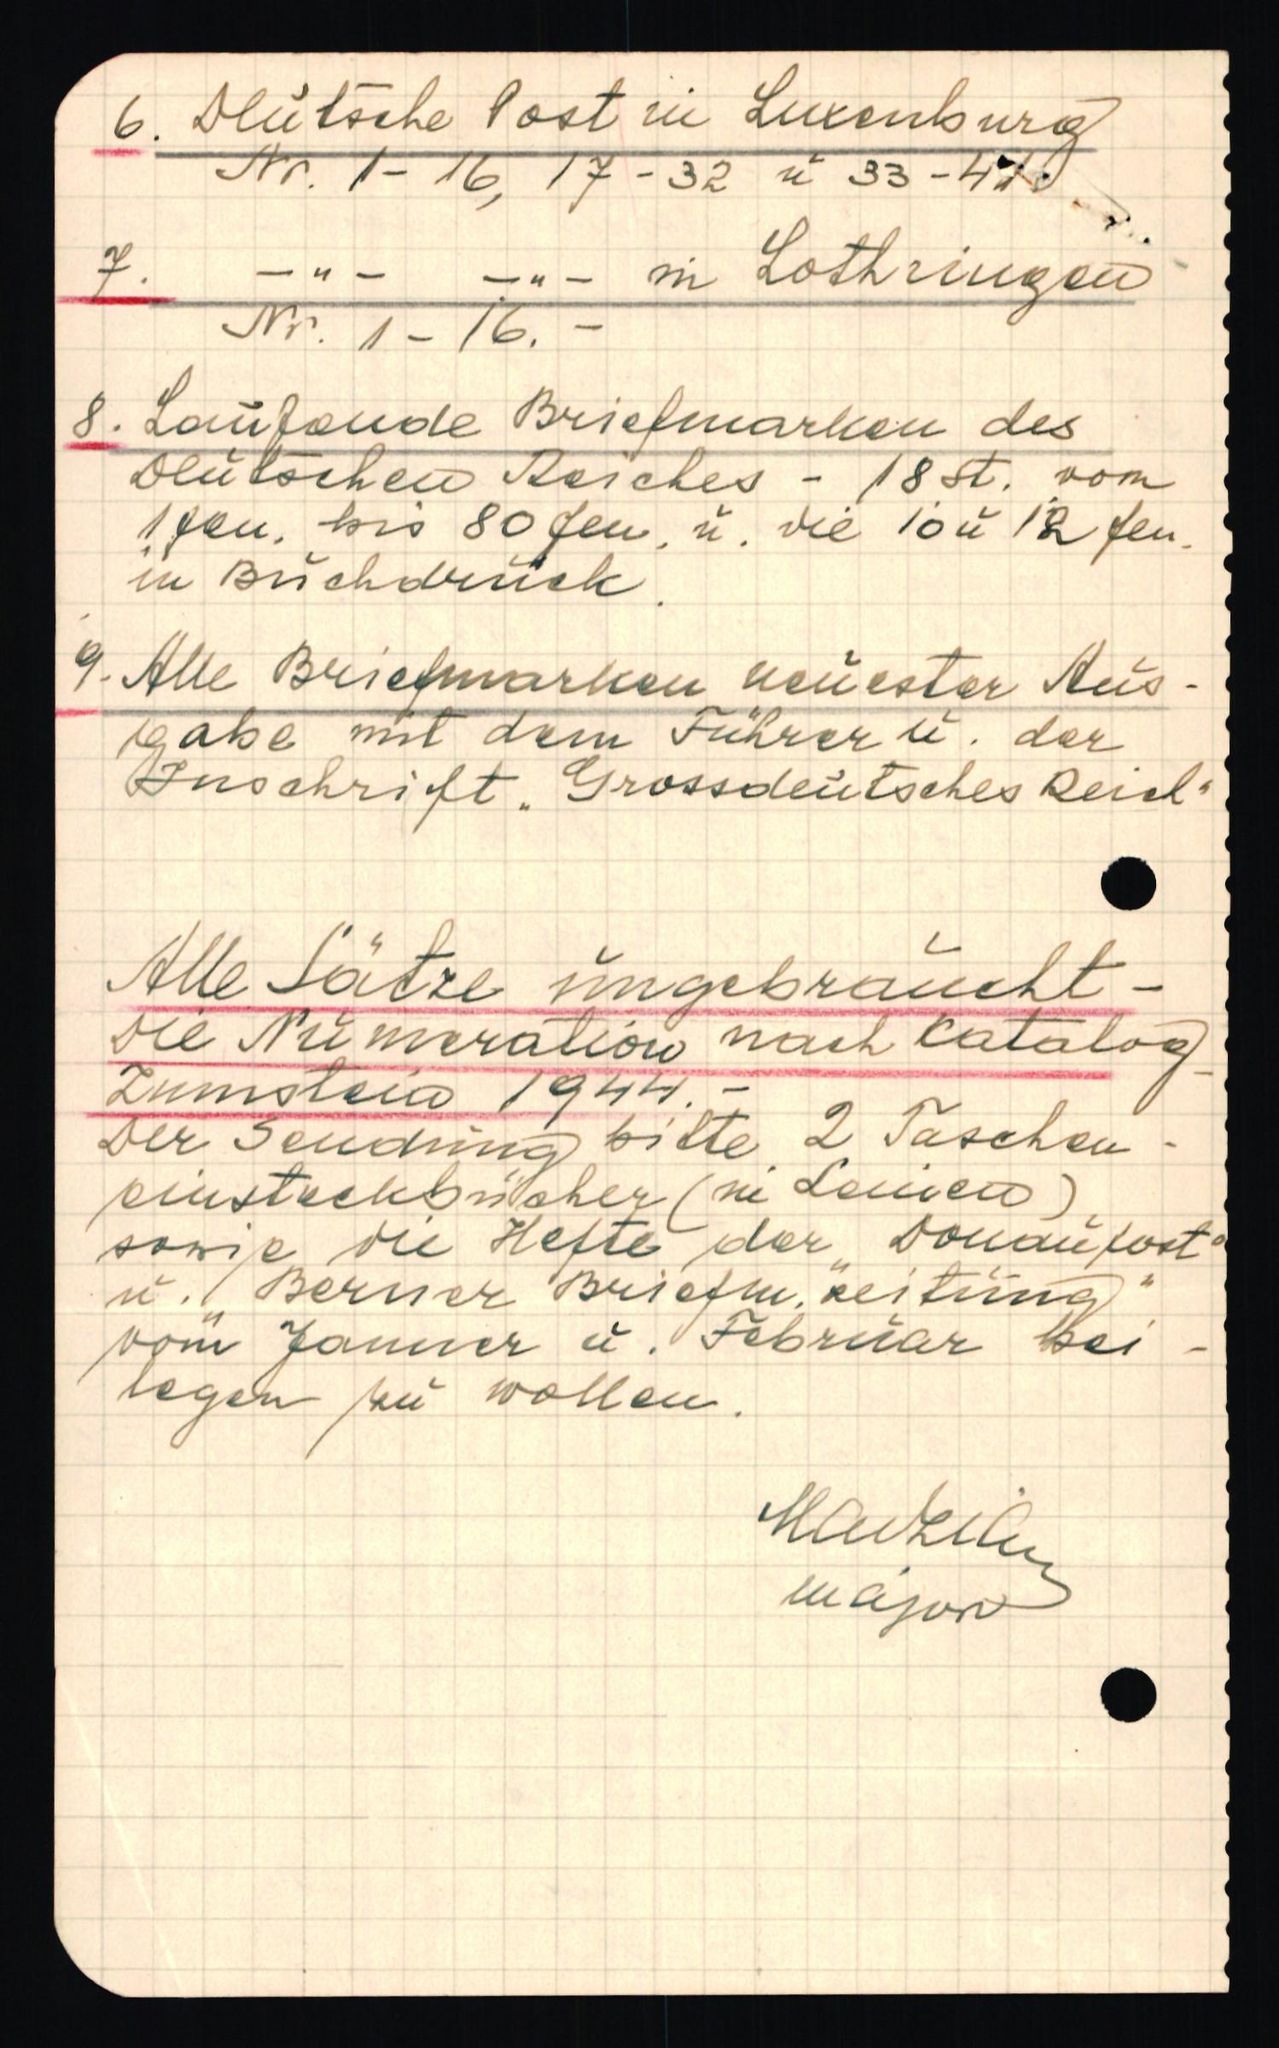 6. Deutsche Post in Luxenburg
Nr. 1 - 16, 17 - 32 u 33 -
7. -"- -"- in Lothringen
Nr. 1 - 16. -
8. Laufende Briefmarken des
Deutschen Reiches - 18 St. vom
1 fen. bis 80 fen. u. die 10 u 12 fen.
in Buchdruck.
9. Alle Briefmarken neuester Aus-
gabe mit dem Führer u. der
Inschrift „Grossdeutsches Reich"
Alle Sätze ungebraucht -
Die Numeration nach Catalog
Zumstein 1944. -
Der Sendung bitte 2 Taschen-
einsteckbücher (in Leinen)
sowie die Hefte der „Donaupost"
u. „Berner Briefm. Zeitung"
vom Januer u. Februar bei-
legen zu wollen.
Major